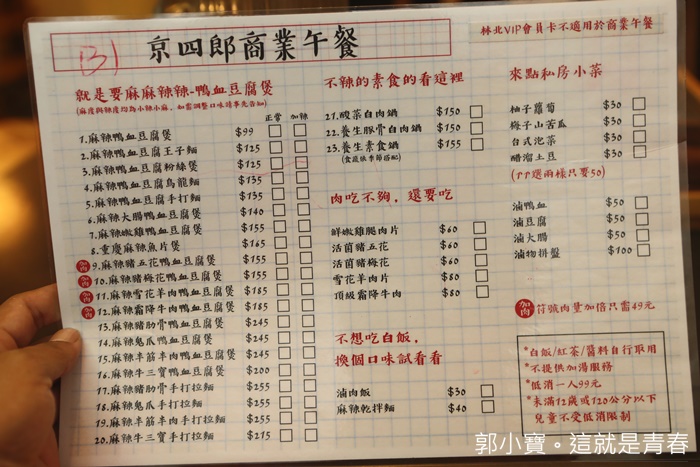 B1
京四郎商業午餐
林北VIP會員卡不適用於商業午餐
就是要麻麻辣辣-鴨血豆腐煲
(麻度與辣度均為小辣小麻，如需調整口味請事先告知)
正常 加辣
1.麻辣鴨血豆腐煲 $99
2.麻辣鴨血豆腐王子麵 $125
3.麻辣鴨血豆腐粉絲煲 $125
4.麻辣鴨血豆腐烏龍麵 $135
5.麻辣鴨血豆腐手打麵 $135
6.麻辣大腸鴨血豆腐煲 $140
7.麻辣嫩雞鴨血豆腐煲 $155
8.重慶麻辣魚片煲 $165
加肉 9.麻辣豬五花鴨血豆腐煲 $155
加肉 10.麻辣豬梅花鴨血豆腐煲 $155
加肉 11.麻辣雪花羊肉鴨血豆腐煲 $185
加肉 12.麻辣霜降牛肉鴨血豆腐煲 $185
13.麻辣豬肋骨鴨血豆腐煲 $245
14.麻辣鬼爪鴨血豆腐煲 $245
15.麻辣半筋半肉鴨血豆腐煲 $245
16.麻辣牛三寶鴨血豆腐煲 $200
17.麻辣豬肋骨手打拉麵 $255
18.麻辣鬼爪手打拉麵 $255
19.麻辣半筋半肉手打拉麵 $255
20.麻辣牛三寶手打拉麵 $215
不辣的素食的看這裡
21.酸菜白肉鍋 $150
22.養生豚骨白肉鍋 $150
23.養生素食鍋 $155
(食蔬依季節搭配)
肉吃不夠，還要吃
鮮嫩雞腿肉片 $60
活菌豬五花 $60
活菌豬梅花 $60
雪花羊肉片 $80
頂級霜降牛肉 $80
不想吃白飯，
換個口味試看看
滷肉飯 $30
麻辣乾拌麵 $40
來點私房小菜
柚子蘿蔔 $30
梅子山苦瓜 $30
台式泡菜 $30
醋溜土豆 $30
(PP選兩樣只要50)
滷鴨血 $50
滷豆腐 $50
滷大腸 $50
滷物拼盤 $100
加肉 符號肉量加倍只需49元
*白飯/紅茶/醬料自行取用
*不提供加湯服務
*低消一人99元
*未滿12歲或120公分以下
兒童不受低消限制
郭小寶。這就是青春